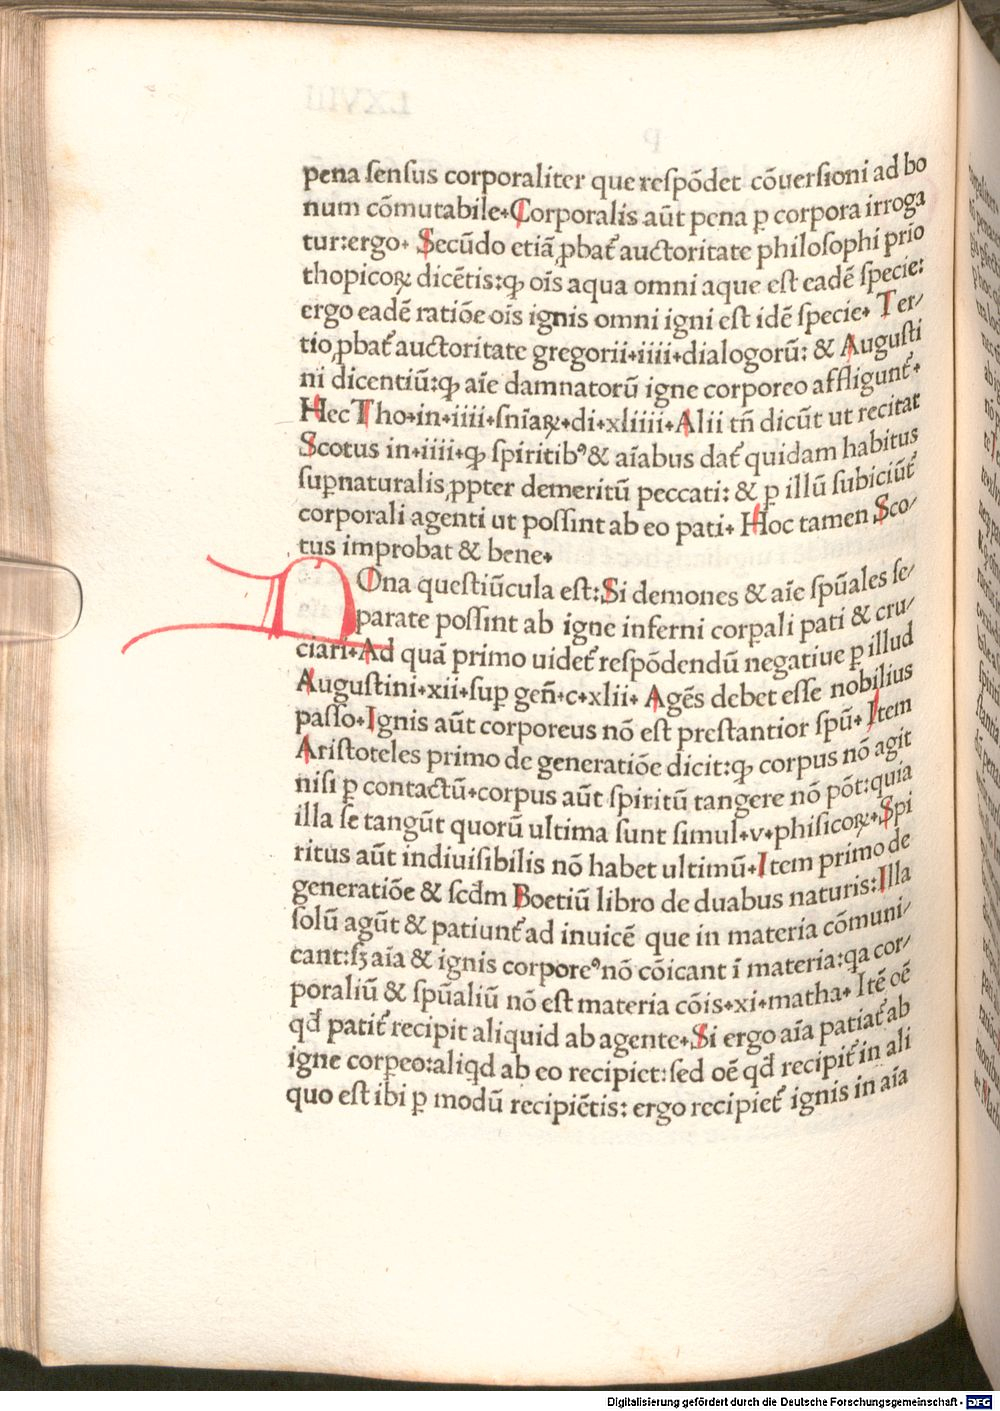 pena ſenſus corporaliter que reſpõdet cõuerſioni ad bo
num cõmutabile. Corporalis aũt pena ꝑ corpora irroga
tur:ergo. Secũdo etiã ꝓbat᷑ auctoritate philoſophi prío
thopicoꝝ dicẽtis:ꝙ oĩs aqua omni aque eſt eadẽ ſpecie:
ergo eadẽ ratiõe oĩs ignis omni igni eſt idẽ ſpecie. Ter/
tio ꝓbat᷑ auctoritate gregorii.iiii.dialogorũ: & Auguſti
ni dicentiũ:ꝙ aĩe damnatorũ igne corporeo affligunt᷑.
Hec Tho.in.iiii.ſnĩaꝝ.di.xliiii. Alii tñ dicũt ut recitat
Scotus in.iiii.ꝙ ſpiritibꝰ & aĩabus dat᷑ quidam habitus
ſuꝑnaturalis ꝓpter demeritũ peccati: & ꝑ illũ ſubiciũt᷑
corporali agenti ut poſſint ab eo pati. Hoc tamen Sco/
tus improbat & bene.
Ona queſtiũcula eſt:Si demones & aĩe ſpũales ſe/
parate poſſint ab igne inferni corꝑali pati & cru/
ciari.Ad quã primo uidet᷑ reſpõdendũ negatiue ꝑ illud
Auguſtini.xii.ſuꝑ geñ.c.xlii. Agẽs debet eſſe nobilius
paſſo.Ignis aũt corporeus nõ eſt preſtantior ſpũ. Item
Ariſtoteles primo de generatiõe dicit:ꝙ corpus nõ agit
niſi ꝑ contactũ.corpus aũt ſpiritũ tangere nõ põt:quia
illa ſe tangũt quorũ ultima ſunt ſimul.v.phiſicoꝝ.Spi
ritus aũt indiuiſibilis nõ habet ultimũ.Item primo de
generatiõe & ſcđm Boetiũ libro de duabus naturis:Illa
ſolũ agũt & patiunt᷑ ad inuicẽ que in materia cõmuni/
cant:ſꝫ aĩa & ignis corporeꝰ nõ cõicant ĩ materia:qa cor/
poraliũ & ſpũaliũ nõ eſt materia cõis.xi.matha. Itẽ oẽ
qđ patit᷑ recipit aliquid ab agente.Si ergo aĩa patiat᷑ ab
igne corꝑeo:aliqd ab eo recipiet:ſed oẽ qđ recipit᷑ in ali
quo eſt ibi ꝑ modũ recipiẽtis: ergo recipiet᷑ ignis in aĩa
Digitalisierung gefördert durch die Deutsche Forschungsgemeinschaft - DFG